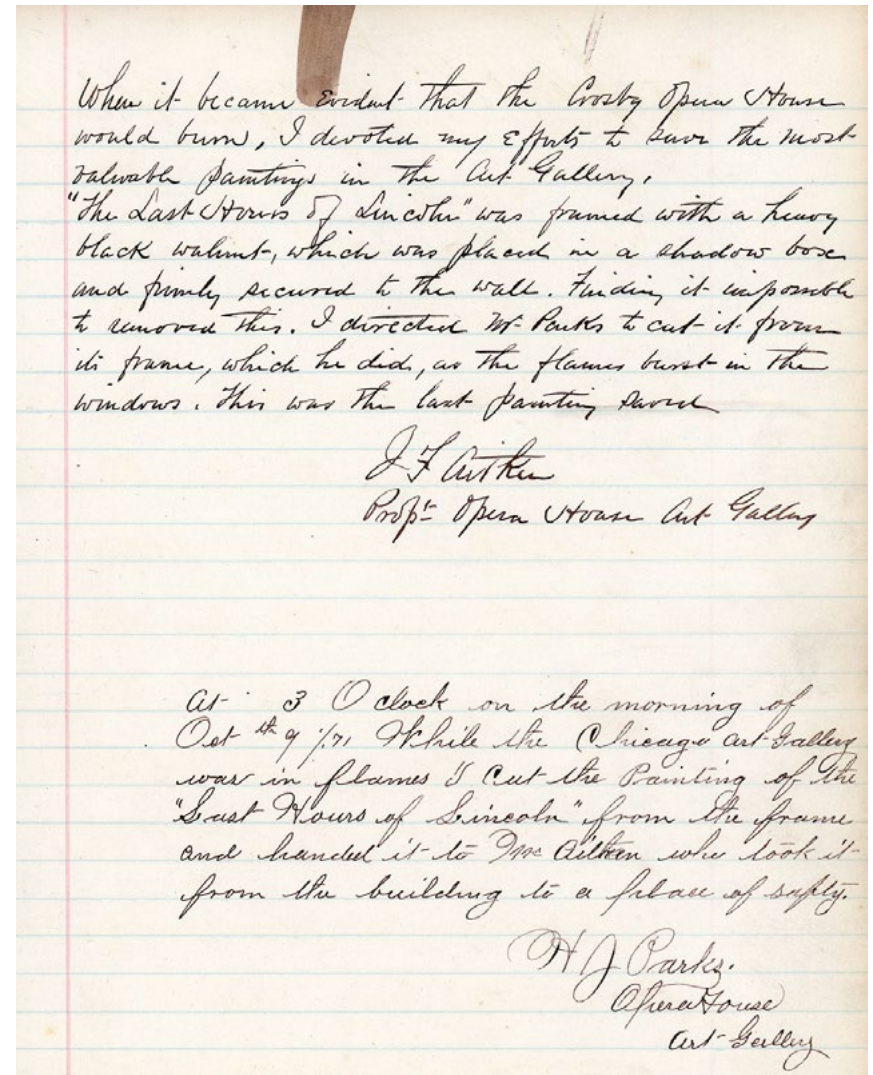 When it became Evident that the Crosby Opera House
would burn, I devoted my Efforts to save the most
valuable paintings in the Art Gallery.
"The Last Hours of Lincoln" was framed with a heavy
black walnut, which was placed in a shadow box
and firmly secured to the wall. Finding it impossible
to removed this. I directed Mr Parks to cut it from
its frame, which he did, as the flames burst in the
windows. This was the last painting saved
J F Aitken
Propr Opera House Art Gallery
At 3 O clock on the morning of
Oct th 9 /71 While the Chicago Art Gallery
was in flames I Cut the Painting of the
"Last Hours of Lincoln" from the frame
and handed it to Mr Aitken who took it
from the building to a place of safty.
H J Parks.
Opera House
Art Gallery